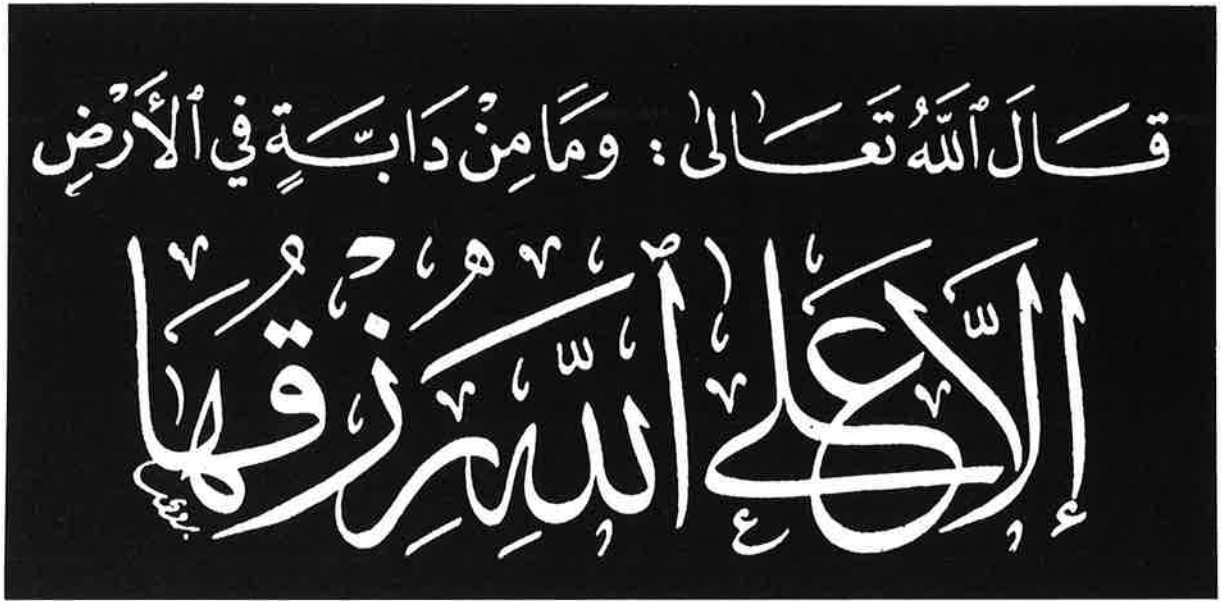 قَالَ ٱللَّهُ تَعَالىٰ: وَمَا مِنْ دَابَّةٍ فِي ٱلْأَرْضِ
إِلَّا عَلَى ٱللَّهِ رِزْقُهَا